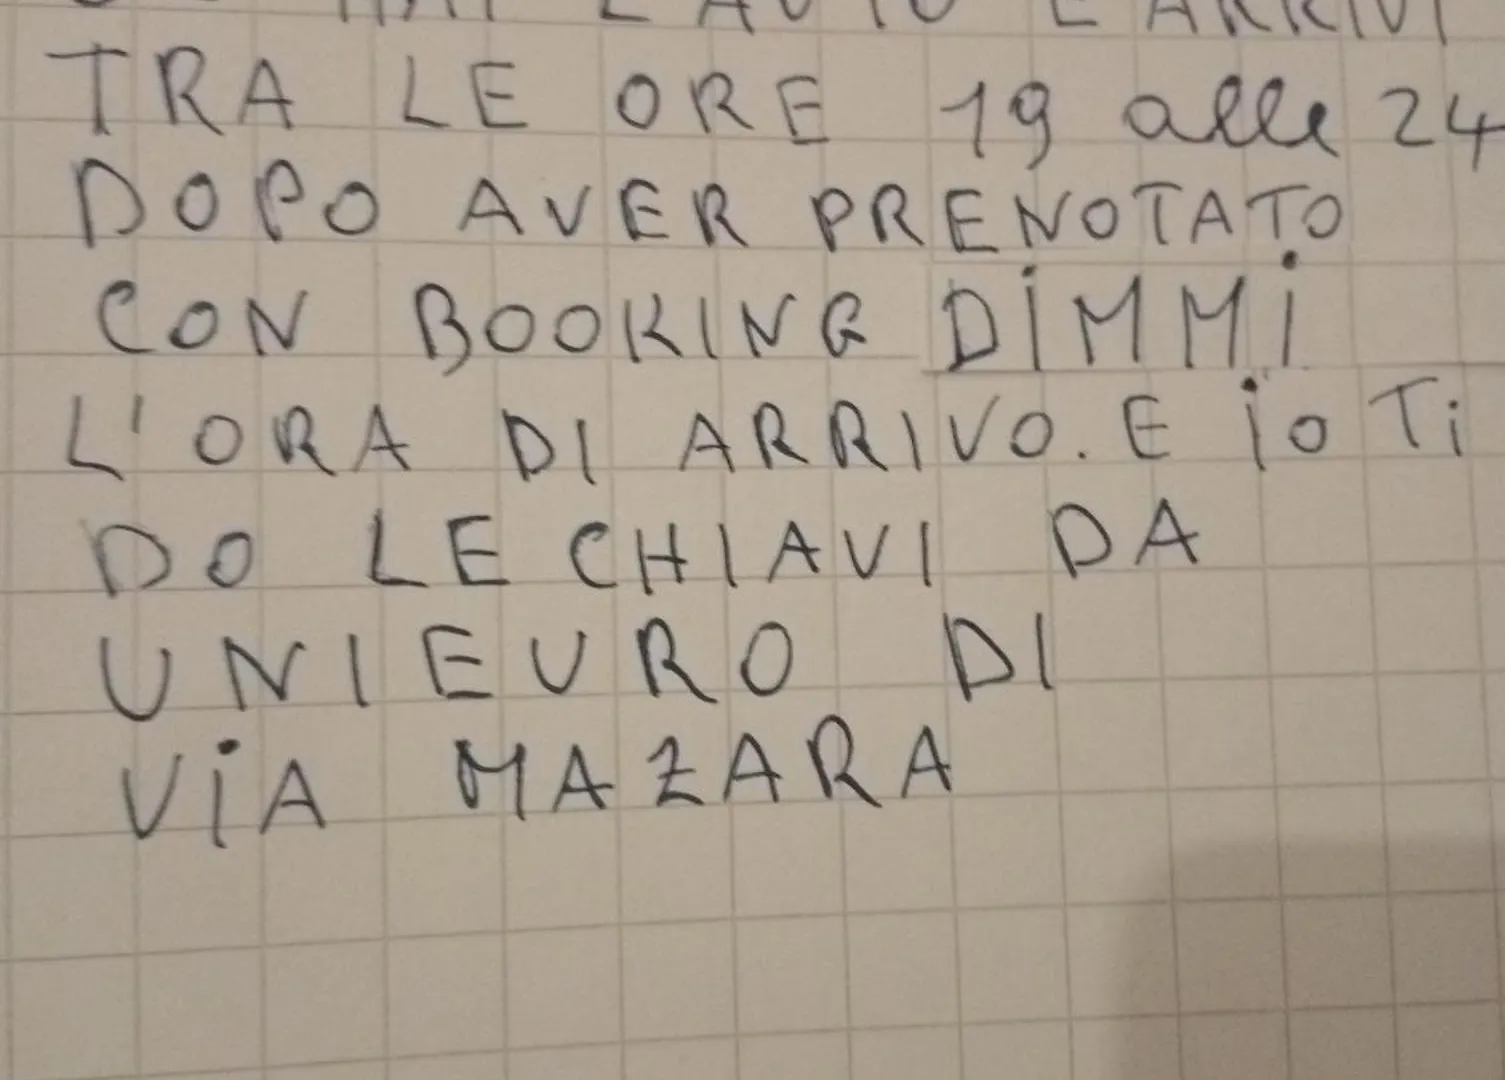 HAI L'AUTO E ARRIVI
TRA LE ORE 19 alle 24
DOPO AVER PRENOTATO
CON BOOKING DIMMI
L'ORA DI ARRIVO. E io Ti
DO LE CHIAVI DA
UNIEURO DI
ViA MAZARA